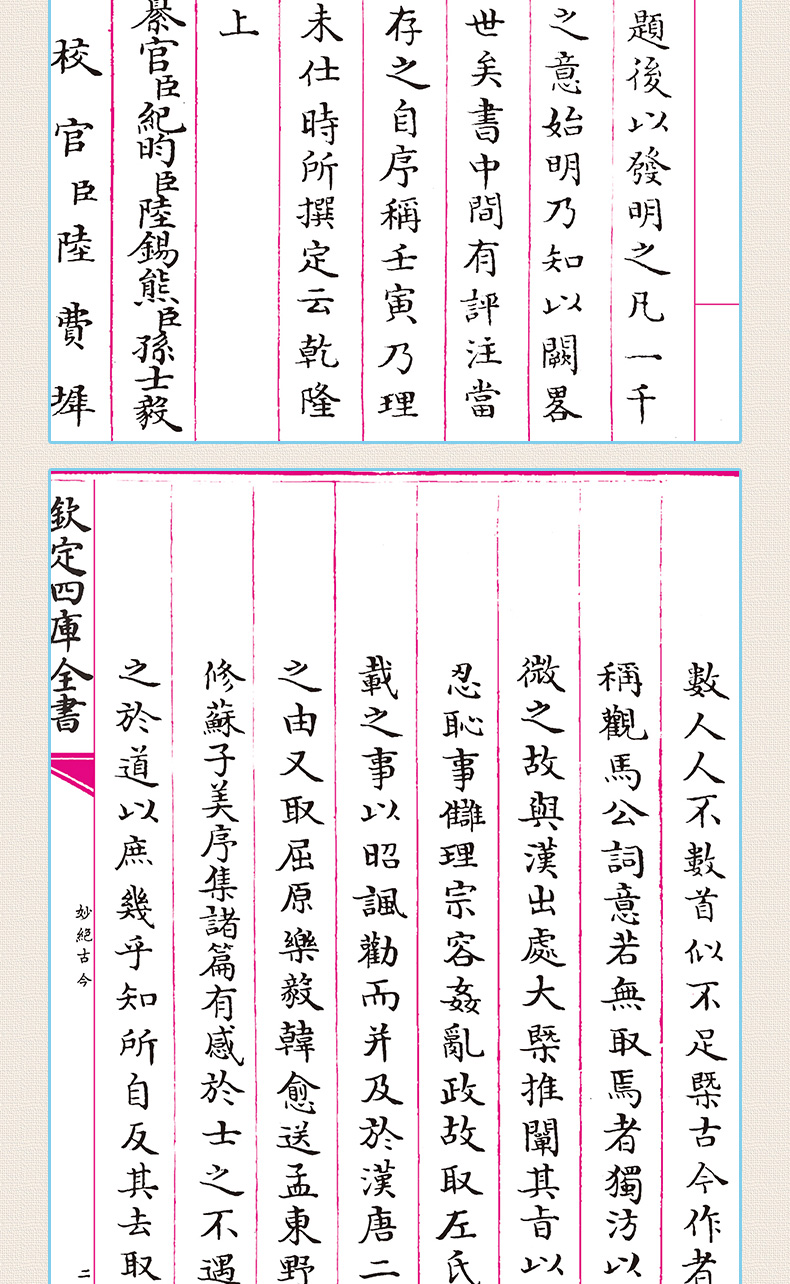 題後以發明之凡一千
之意始明乃知以闕畧
世矣書中間有評注當
存之自序稱壬寅乃理
未仕時所撰定云乾隆
上
纂官臣紀昀臣陸錫熊臣孫士毅
校官臣陸費墀
數人人不數首似不足槩古今作者
稱觀馬公詞意若無取焉者獨汸以
微之故與漢出處大槩推闡其旨以
忍恥事讎理宗容姦亂政故取左氏
載之事以昭諷勸而并及於漢唐二
之由又取屈原樂毅韓愈送孟東野
修蘇子美序集諸篇有感於士之不遇
之於道以庶幾乎知所自反其去取
欽定四庫全書
妙絕古今
二